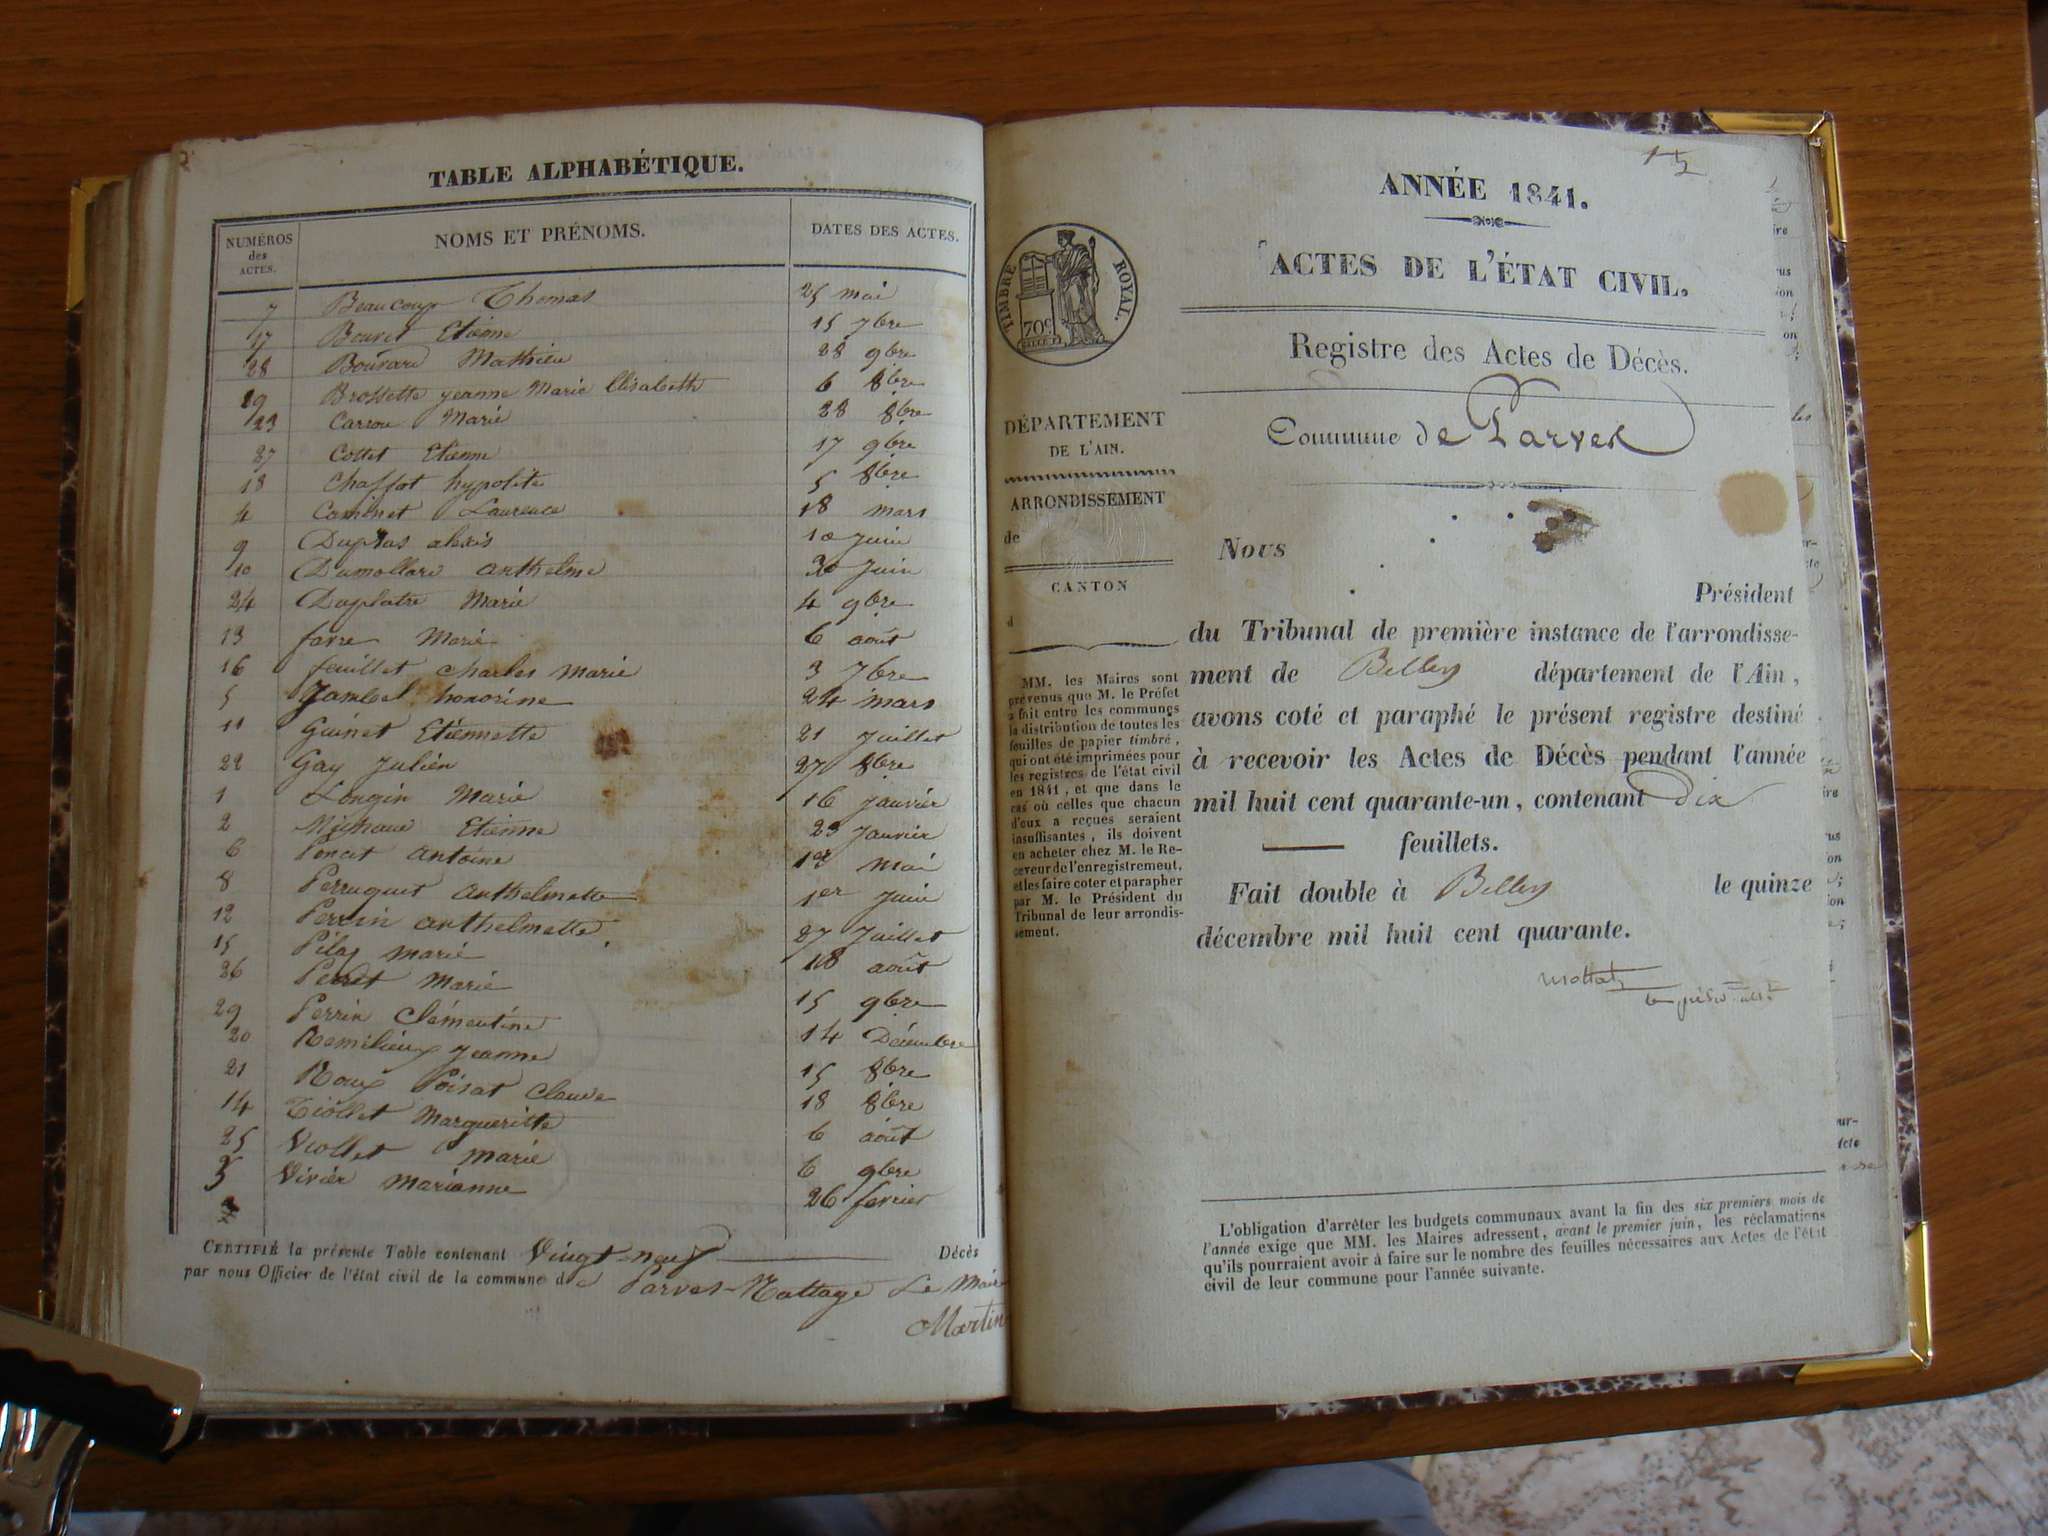 TABLE ALPHABÉTIQUE.
NUMÉROS des ACTES. NOMS ET PRÉNOMS. DATES DES ACTES.
7 Beaucoup Thomas 25 mai
17 Bouvet Etienne 15 7bre
28 Bouvard Mathieu 28 9bre
19 Brossette jeanne Marie Elisabeth 6 8bre
23 Carrou Marie 28 8bre
27 Collet Etienne 17 9bre
18 Chaffot hypolite 5 8bre
4 Caminet Laurence 18 mars
9 Duplas alexis 10 Juin
10 Dumollard anthelme 30 Juin
24 Duplatre Marie 4 9bre
13 favre Marie 6 août
16 feuillet charles marie 3 7bre
5 Jambet honorine 24 mars
11 Guinet Etiennette 21 Juillet
22 Gay Julien 27 8bre
1 Longin Marie 16 Janvier
2 Michaud Etienne 23 Janvier
6 Poncet antoine 12 mai
8 Perruquet anthelmette 1er Juin
12 Perrin anthelmette 27 Juillet
15 Pilaz marie 18 août
26 Perret Marie 15 9bre
29 Perrin Clémentine 14 Décembre
20 Remilieux jeanne 15 8bre
21 Roux Poisat Claude 18 8bre
14 Tiollet Margueritte 6 août
25 Viollet marie 6 9bre
3 Vivier marianne 26 fevrier
CERTIFIÉ la présente Table contenant Vingt-neuf Décès
par nous Officier de l'état civil de la commune de Parves-Nattage Le Maire
Martin
15
ANNÉE 1841.
ACTES DE L'ÉTAT CIVIL.
TIMBRE ROYAL.
70c
Registre des Actes de Décès.
Commune de Parves
DÉPARTEMENT
DE L'AIN.
ARRONDISSEMENT
de
CANTON
d
MM. les Maires sont
prévenus que M. le Préfet
a fait entre les communes
la distribution de toutes les
feuilles de papier timbré,
qui ont été imprimées pour
les registres de l'état civil
en 1841, et que dans le
cas où celles que chacun
d'eux a reçues seraient
insuffisantes, ils doivent
en acheter chez M. le Re-
ceveur de l'enregistrement,
et les faire coter et parapher
par M. le Président du
Tribunal de leur arrondis-
sement.
Nous
Président
du Tribunal de première instance de l'arrondisse-
ment de Belley département de l'Ain,
avons coté et paraphé le présent registre destiné
à recevoir les Actes de Décès pendant l'année
mil huit cent quarante-un, contenant Dix
feuillets.
Fait double à Belley le quinze
décembre mil huit cent quarante.
L'obligation d'arrêter les budgets communaux avant la fin des six premiers mois de
l'année exige que MM. les Maires adressent, avant le premier juin, les réclamations
qu'ils pourraient avoir à faire sur le nombre des feuilles nécessaires aux Actes de l'état
civil de leur commune pour l'année suivante.